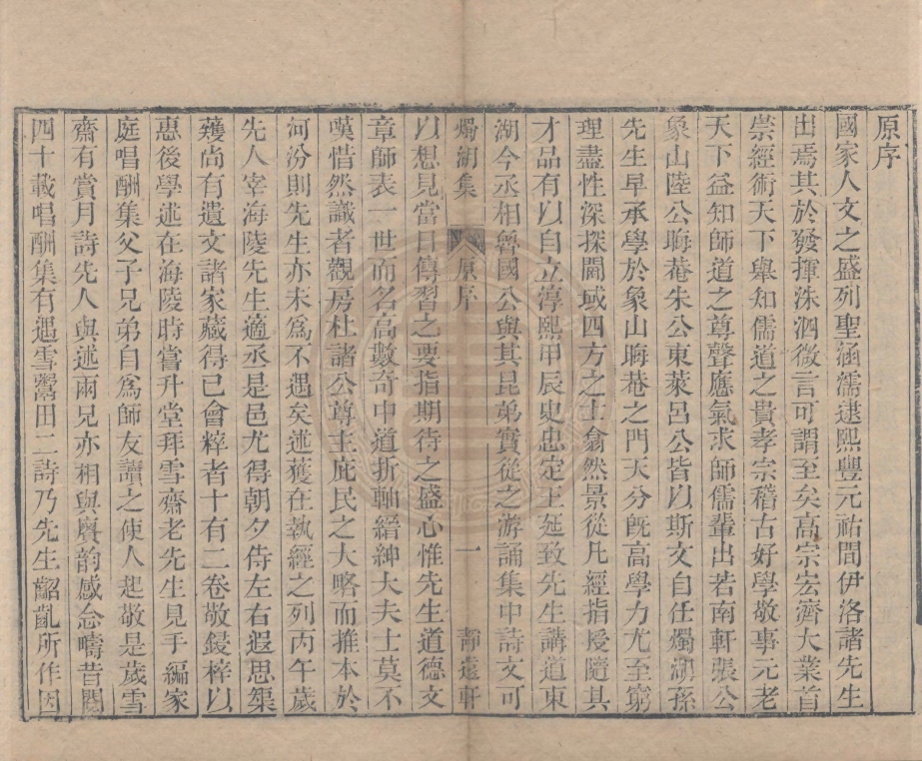 原序
國家人文之盛列聖涵濡逮熙豐元祐間伊洛諸先生
出焉其於發揮洙泗微言可謂至矣高宗宏濟大業首
崇經術天下舉知儒道之貴孝宗稽古好學敬事元老
天下益知師道之尊聲應氣求師儒輩出若南軒張公
象山陸公晦菴朱公東萊呂公皆以斯文自任燭湖孫
先生早承學於象山晦菴之門天分旣高學力尤至窮
理盡性深探閫域四方之士翕然景從凡經指授隨其
才品有以自立淳熙甲辰史忠定王延致先生講道東
湖今丞相魯國公與其昆弟實從之游誦集中詩文可
燭湖集 原序 一 靜遠軒
以想見當日傳習之要指期待之盛心惟先生道德文
章師表一世而名高數奇中道折軸縉紳大夫士莫不
嘆惜然識者觀房杜諸公尊主庇民之大略而推本於
河汾則先生亦未爲不遇矣述獲在執經之列丙午歲
先人宰海陵先生適丞是邑尤得朝夕侍左右遐思榘
蒦尚有遺文諸家藏得已會粹者十有二卷敬鋟梓以
惠後學述在海陵時嘗升堂拜雪齋老先生見手編家
庭唱酬集父子兄弟自爲師友讀之使人起敬是歲雪
齋有賞月詩先人與述兩兄亦相與賡韵感念疇昔閱
四十載唱酬集有遇雪鬻田二詩乃先生齠亂所作因